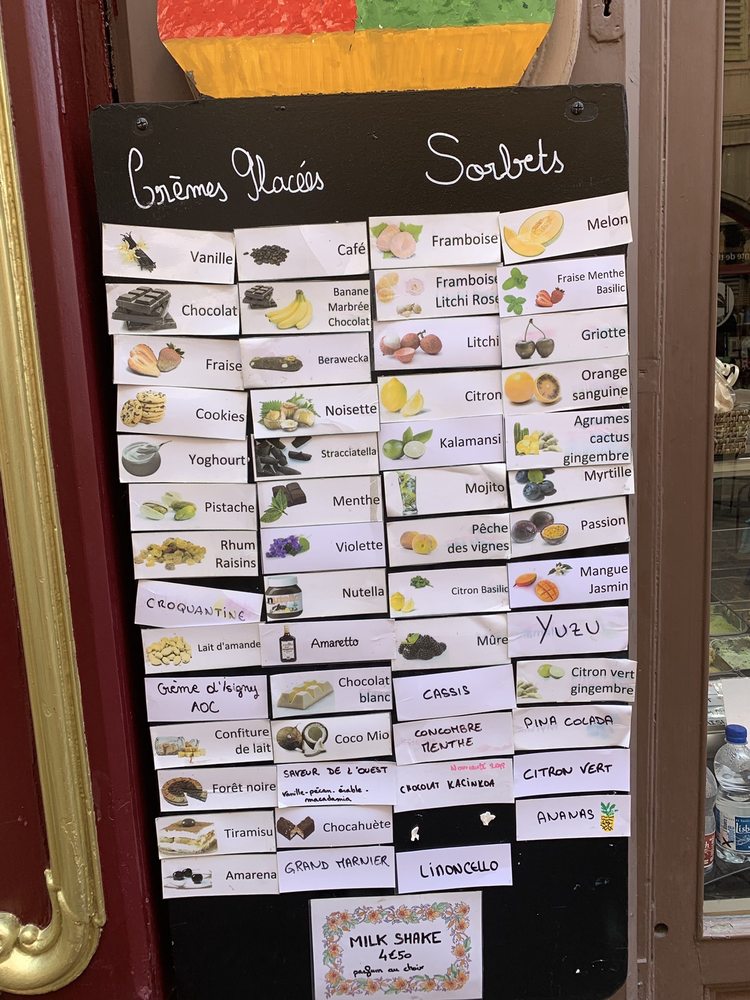 Crèmes Glacées
Vanille
Chocolat
Fraise
Cookies
Yoghourt
Pistache
Rhum
Raisins
CROQUANTINE
Lait d'amande
Crème d'Isigny
AOC
Confiture
de lait
Forêt noire
Tiramisu
Amarena
Café
Banane
Marbrée
Chocolat
Berawecka
Noisette
Stracciatella
Menthe
Violette
Nutella
Amaretto
Chocolat
blanc
Coco Mio
SAVEUR DE L'OUEST
vanille-pécan. érable.
macadamia
Chocahuète
GRAND MARNIER
Sorbets
Framboise
Framboise
Litchi Rose
Litchi
Citron
Kalamansi
Mojito
Pêche
des vignes
Citron Basilic
Mûre
CASSIS
CONCOMBRE
MENTHE
CHOCOLAT KACINKOA
LIMONCELLO
Melon
Fraise Menthe
Basilic
Griotte
Orange
sanguine
Agrumes
cactus
gingembre
Myrtille
Passion
Mangue
Jasmin
YUZU
Citron vert
gingembre
PINA COLADA
CITRON VERT
ANANAS
MILK SHAKE
4€50
parfum au choix